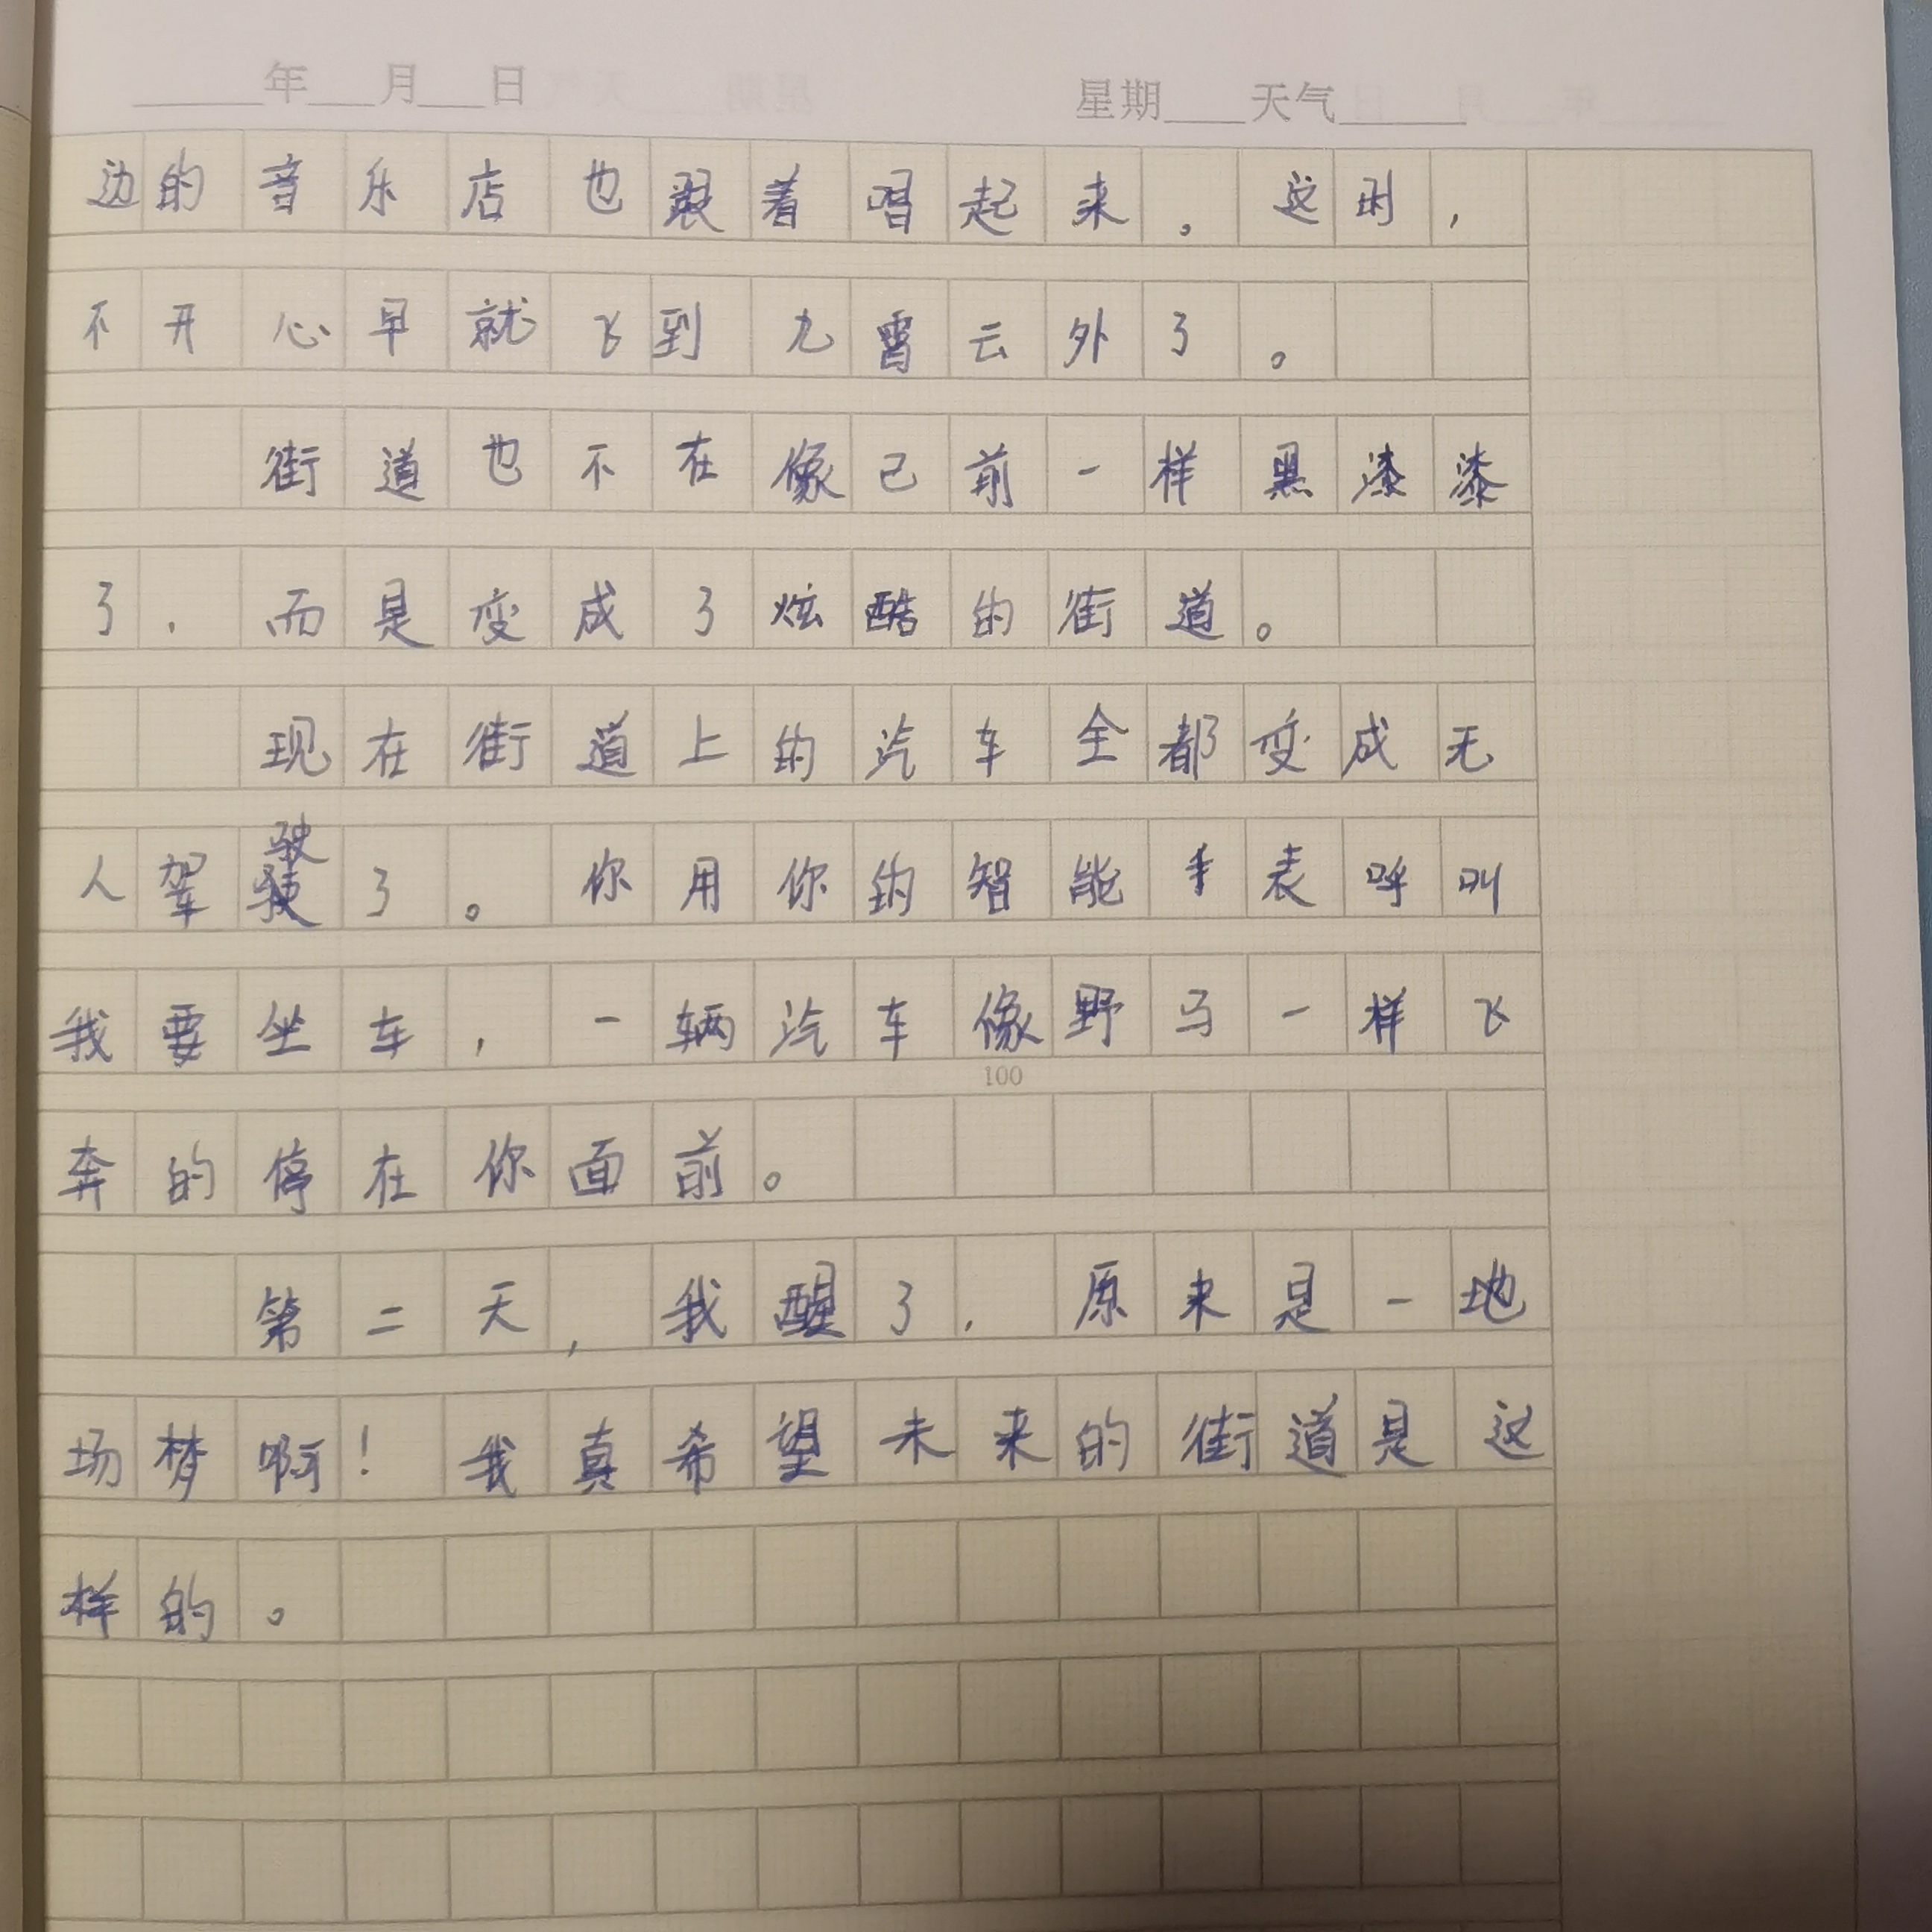 年 月 日 星期 天气
边的音乐店也跟着唱起来。这时,
不开心早就飞到九霄云外了。
街道也不在像己前一样黑漆漆
了,而是变成了炫酷的街道。
现在街道上的汽车全都变成无
人驾驶了。你用你的智能手表呼叫
我要坐车,一辆汽车像野马一样飞
100
奔的停在你面前。
第二天,我醒了,原来是一地
场梦啊!我真希望未来的街道是这
样的。